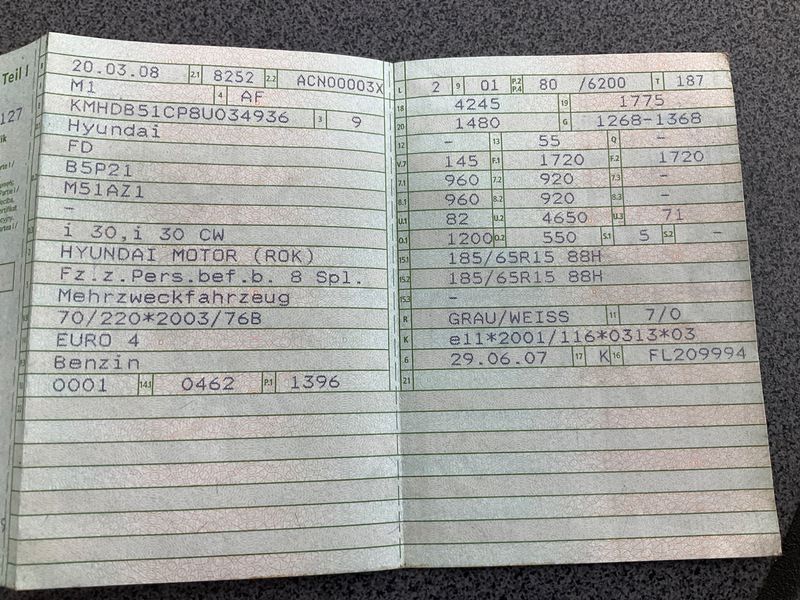 Teil I
127
20.03.08 2.1 8252 2.2 ACN00003X
M1 4 AF
KMHDB51CP8U034936 3 9
Hyundai
FD
B5P21
M51AZ1
-
i 30,i 30 CW
HYUNDAI MOTOR (ROK)
Fz.z.Pers.bef.b. 8 Spl.
Mehrzweckfahrzeug
70/220*2003/76B
EURO 4
Benzin
0001 14.1 0462 P.1 1396
L 2 9 01 P.2 P.4 80 /6200 T 187
18 4245 19 1775
20 1480 G 1268-1368
12 - 13 55 Q -
V.7 145 F.1 1720 F.2 1720
7.1 960 7.2 920 7.3 -
8.1 960 8.2 920 8.3 -
U.1 82 U.2 4650 U.3 71
O.1 1200 O.2 550 S.1 5 S.2 -
15.1 185/65R15 88H
15.2 185/65R15 88H
15.3 -
R GRAU/WEISS 11 7/0
K e11*2001/116*0313*03
6 29.06.07 17 K 16 FL209994
21